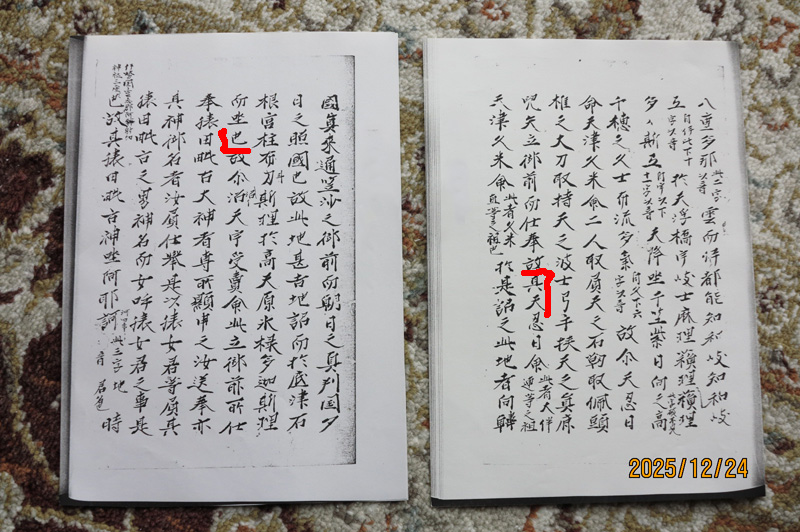 八重多那此二字以音雲而伊都能知和岐知和岐
五自伊以下十字以音於天浮橋宇岐士麻理蘓理蘓理
多〻斯五自宇以下十一字以音天降坐于竺紫日向之高
千穂之久士布流多氣自久以下六字以音故尓天忍日
命天津久米命二人取負天之石靫取佩頭
椎之大刀取持天之波士弓手挟天之真鹿
兒矢立御前而仕奉故其天忍日命此者大伴連等之祖
天津久米命此者久米直等之祖也於是詔之此地者向韓
國真来通笠沙之御前而朝日之真刺國夕
日之照國也故此地甚吉地詔而於底津石
根宮柱布刀斯理於高天原氷椽多迦斯理
而坐也故尓詔天宇受賣命此立御前所仕
奉猨田毗古大神者専所顕申之汝送奉亦
其神御名者汝負仕奉是以猨女君等負其
猨田毗古之男神名而女呼猨女君之事是
也故其猨田毗古神坐阿耶訶此三字以音地名時
2025/12/24